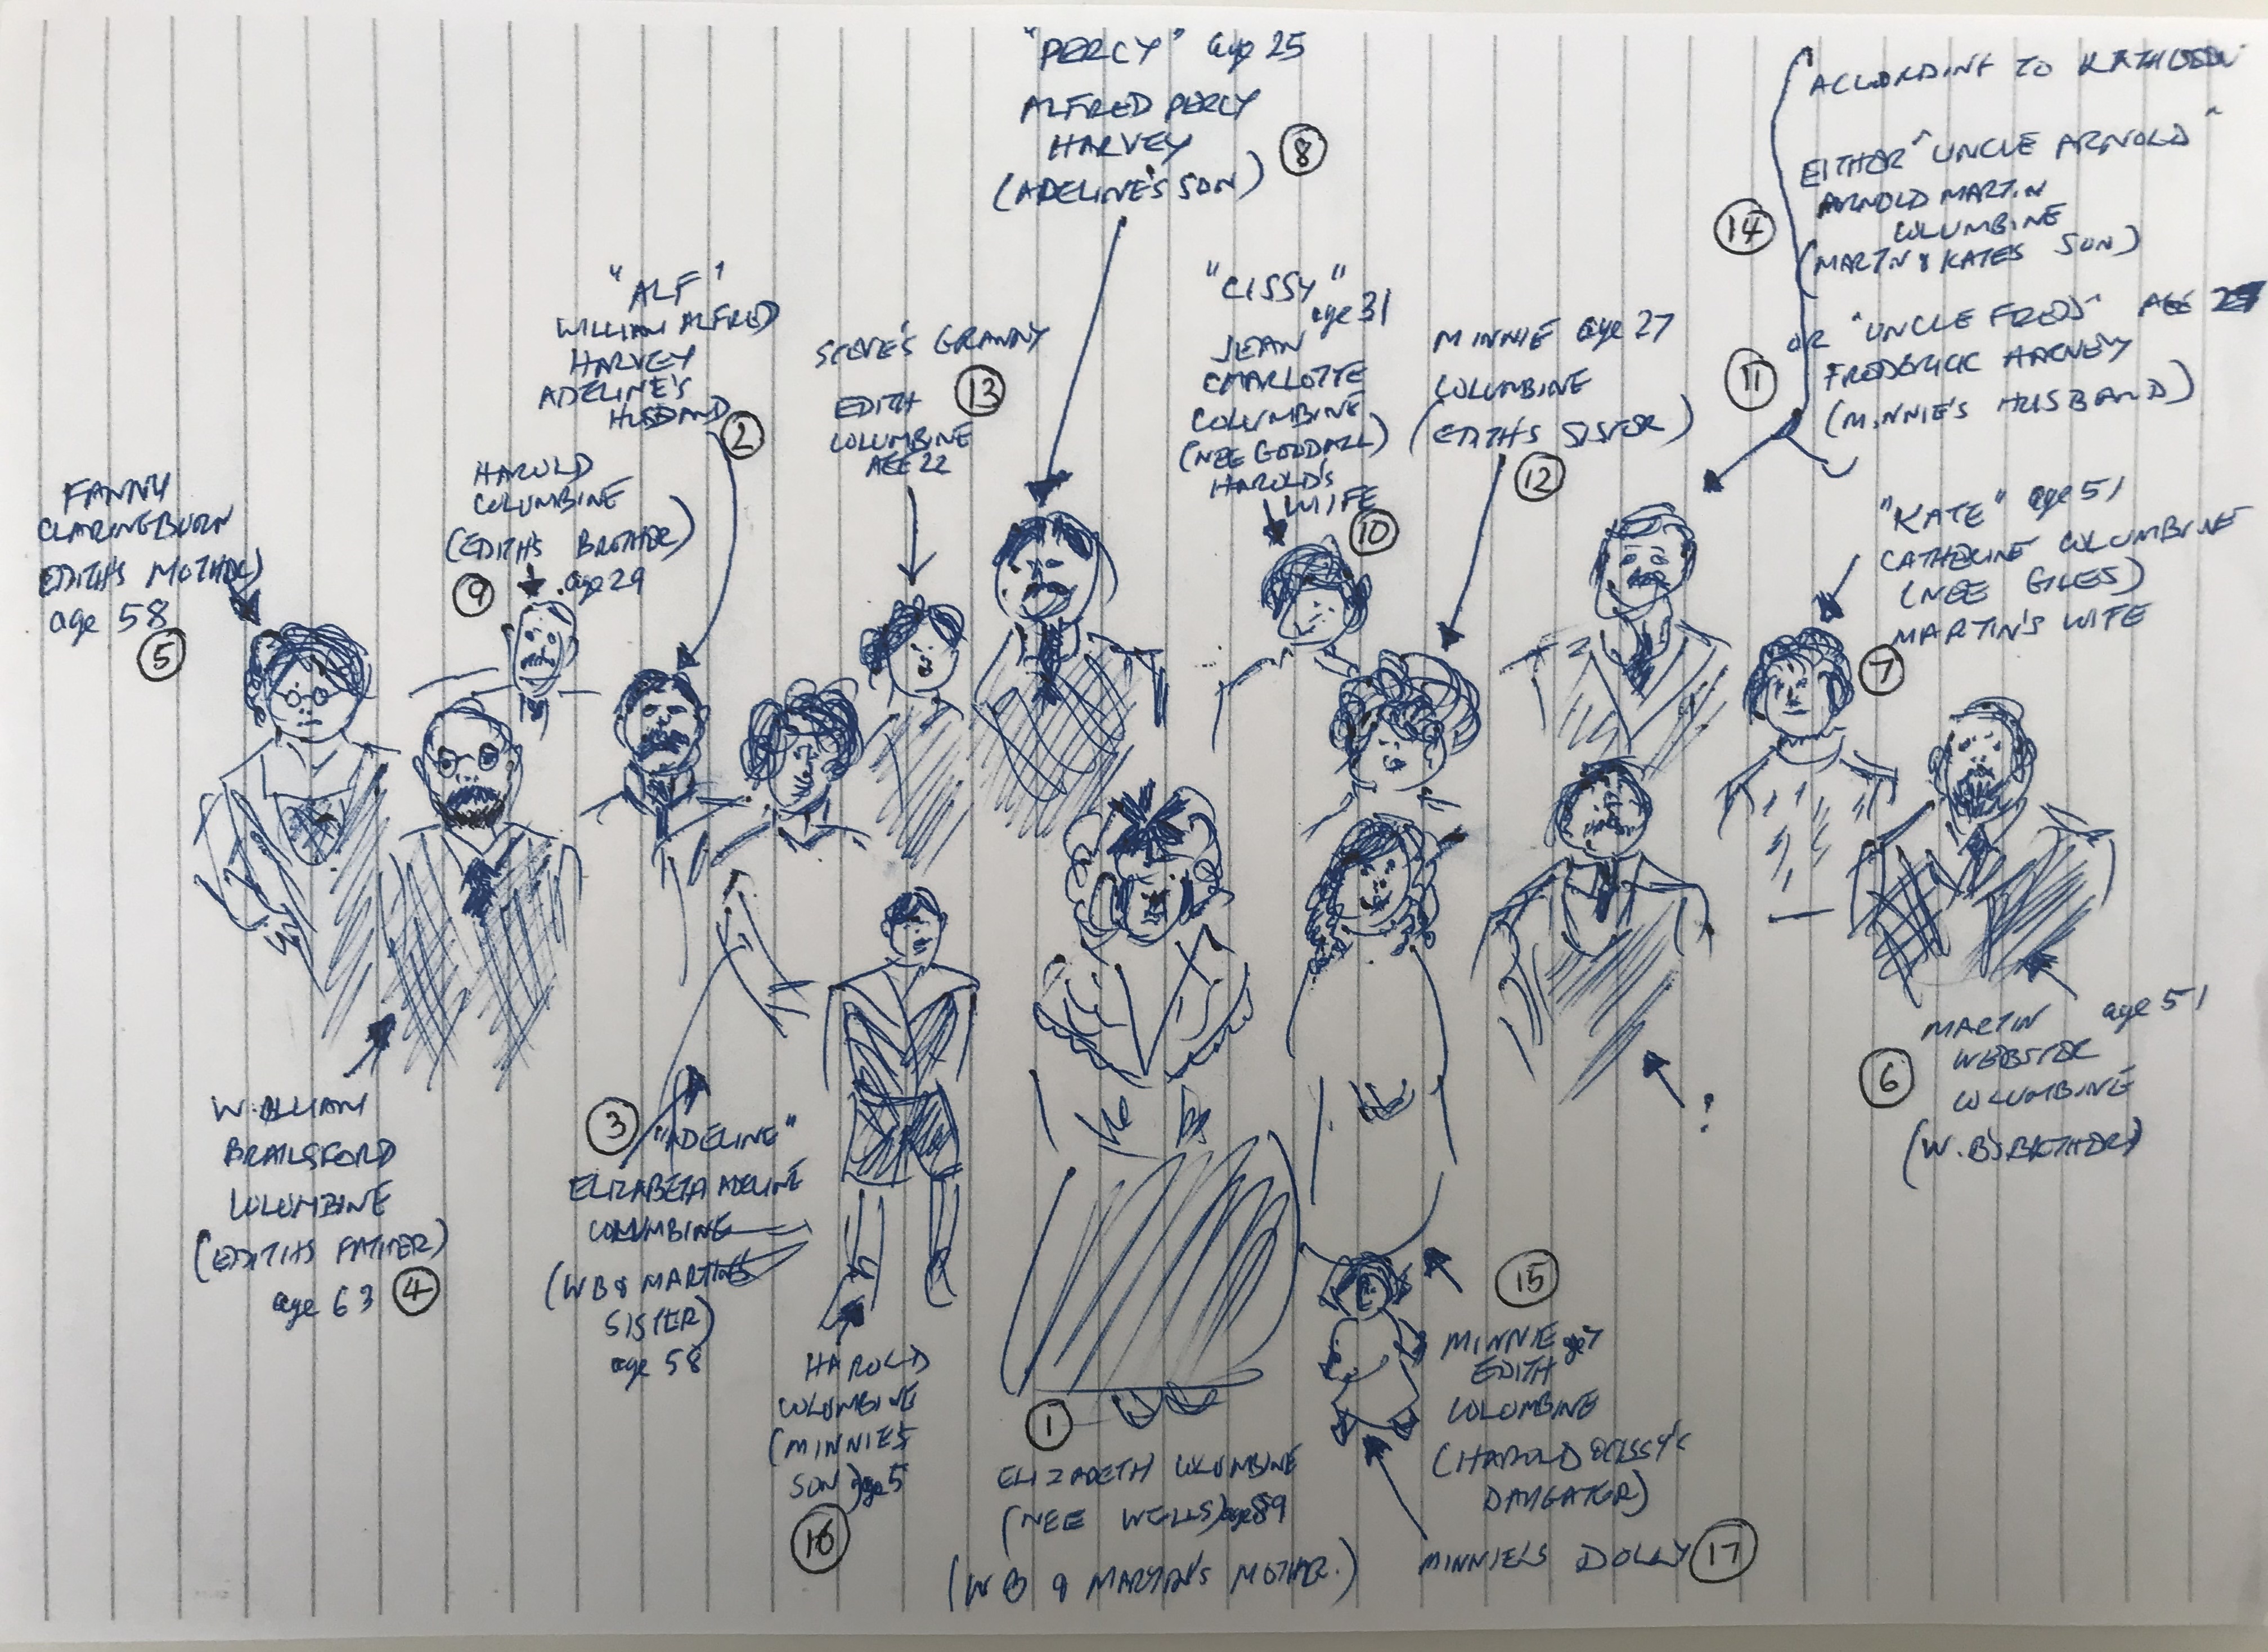 "PERCY" age 25
ALFRED PERCY
HARVEY
(ADELINE'S SON)
8
ACCORDING TO KATHLEEN
EITHER "UNCLE ARNOLD"
ARNOLD MARTIN
COLUMBINE
(MARTIN & KATES SON)
14
OR "UNCLE FRED" AGE
FREDERICK HARVEY
(MINNIE'S HUSBAND)
11
"ALF"
WILLIAM ALFRED
HARVEY
ADELINE'S
HUSBAND
2
STEVE'S GRANNY
EDITH
COLUMBINE
AGE 22
13
"CISSY"
age 31
JEAN
CHARLOTTE
COLUMBINE
(NEE GOODALL)
HAROLD'S
WIFE
10
MINNIE age 27
COLUMBINE
(EDITH'S SISTER)
12
FANNY
CLARINGBURN
EDITH'S MOTHER)
age 58
5
HAROLD
COLUMBINE
(EDITH'S BROTHER)
age 29
9
"KATE" age 51
CATHERINE COLUMBINE
(NEE GILES)
MARTIN'S WIFE
7
WILLIAM
BRAILSFORD
COLUMBINE
(EDITHS FATHER)
age 63
4
3
"ADELINE"
ELIZABETH ADELINE
COLUMBINE
(WB & MARTINS
SISTER)
age 58
HAROLD
COLUMBINE
(MINNIES
SON) age 5
16
1
ELIZABETH COLUMBINE
(NEE WELLS) age 89
(WB & MARTIN'S MOTHER.)
15
MINNIE age 7
EDITH
COLUMBINE
(HAROLD & CISSY'S
DAUGHTER)
MINNIE'S DOLLY
17
?
MARTIN age 51
WEBSTER
COLUMBINE
(W.B'S BROTHER)
6